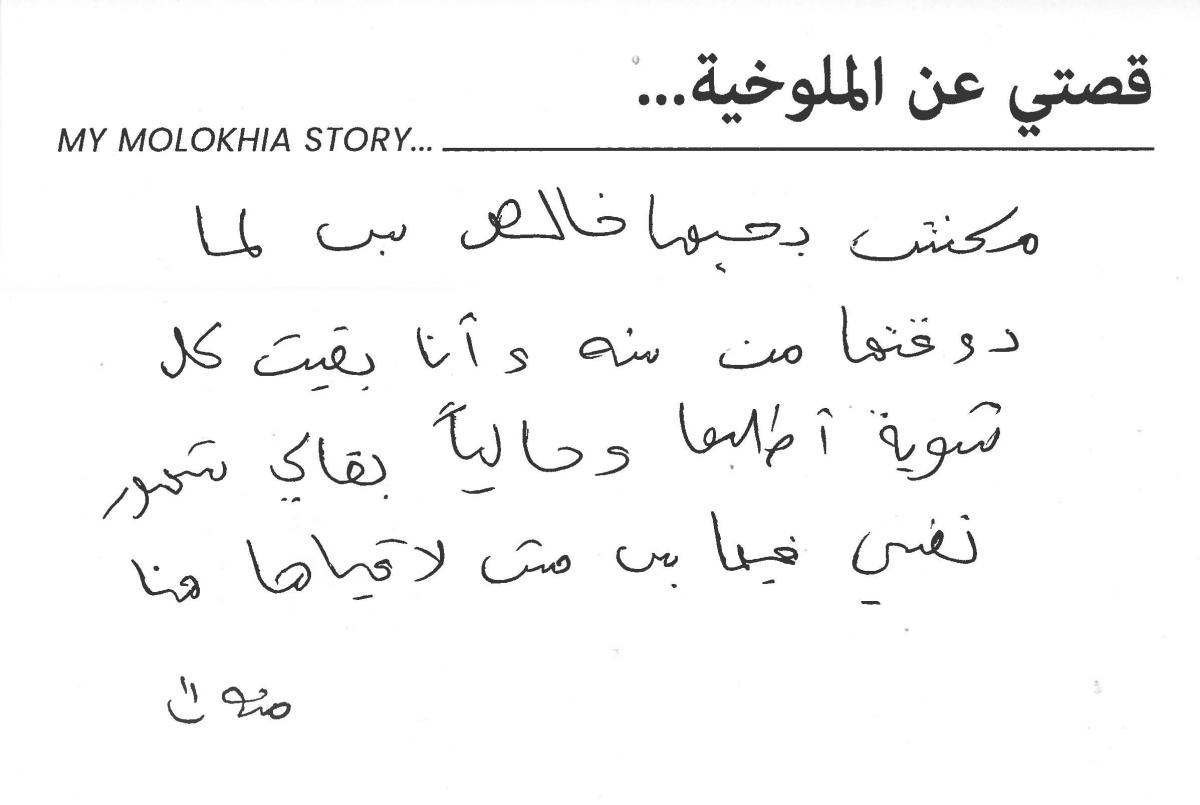 قصتي عن الملوخية...
MY MOLOKHIA STORY...
مكنتش بحبها خالص بس لما
دوقتها من سنه وأنا بقيت كل
شوية أطلبها وحالياً بقالي شهور
نفسي فيها بس مش لاقياها هنا
منه